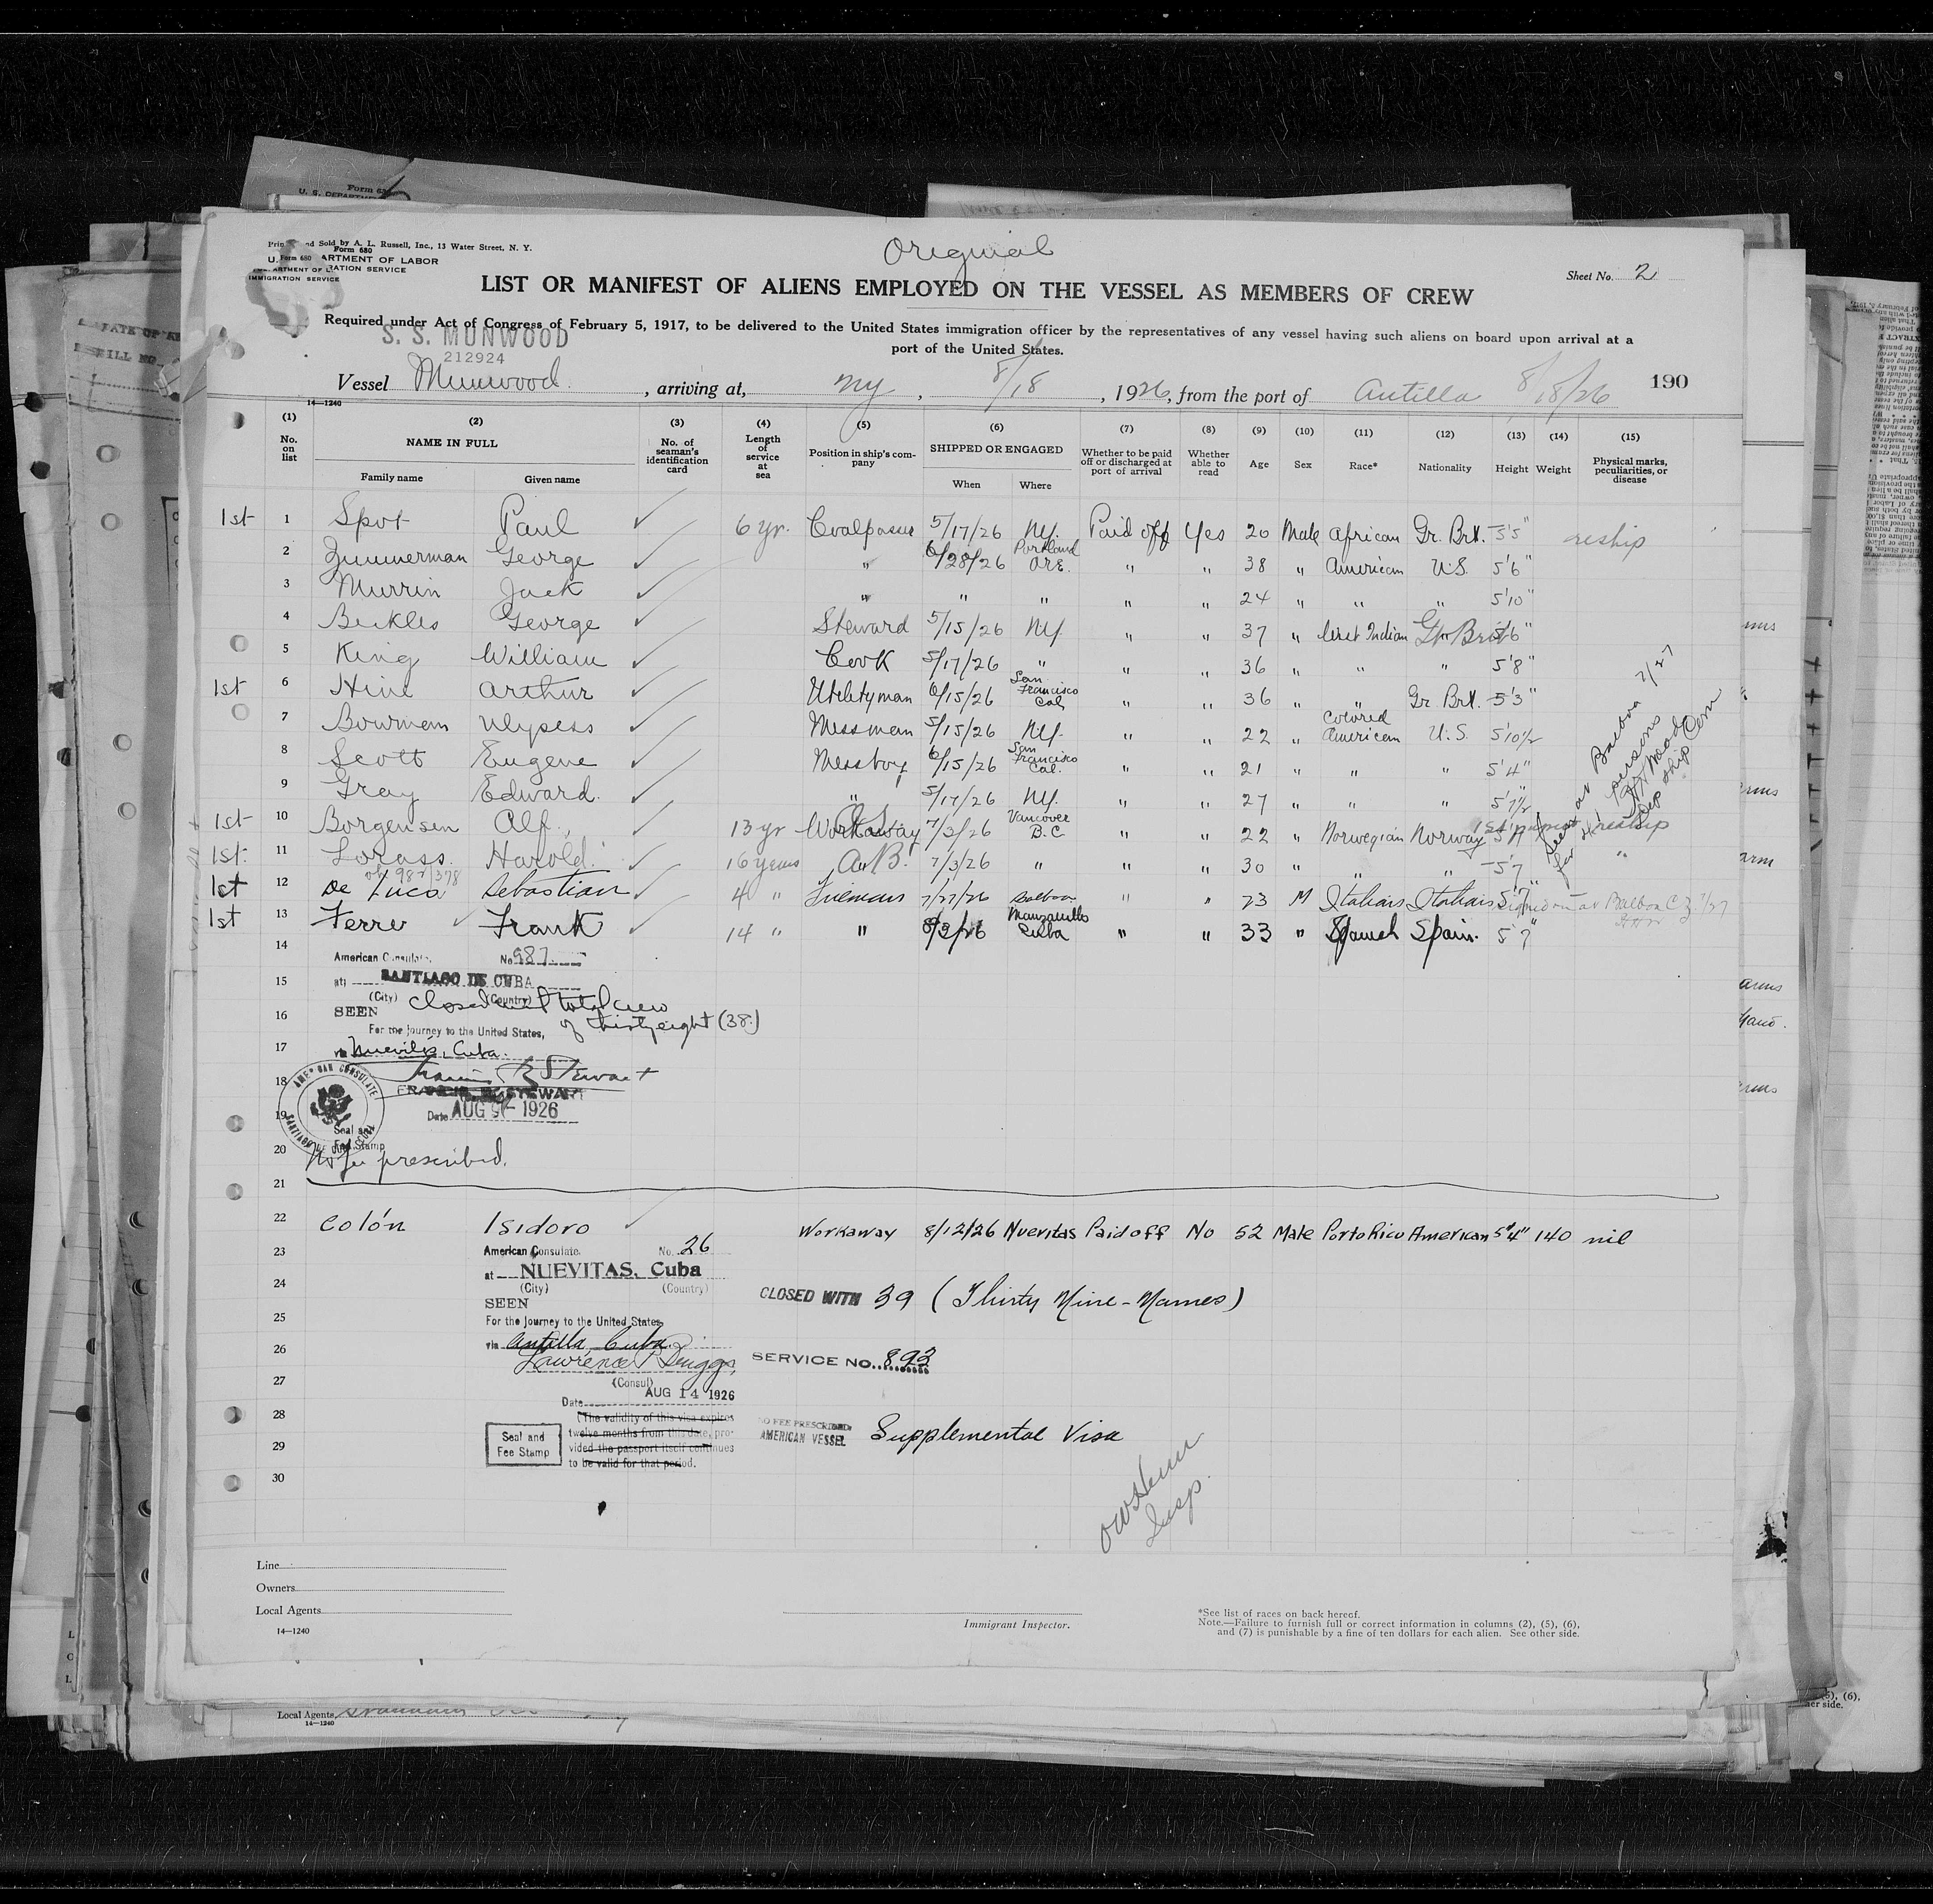 Form 680
U. S. DEPARTMENT
Original
Form 680
Sold by A. L. Russell, Inc., 13 Water Street, N. Y.
U. ARTMENT OF LABOR
IMMIGRATION SERVICE
Sheet No. 2
LIST OR MANIFEST OF ALIENS EMPLOYED ON THE VESSEL AS MEMBERS OF CREW
Required under Act of Congress of February 5, 1917, to be delivered to the United States immigration officer by the representatives of any vessel having such aliens on board upon arrival at a
port of the United States.
S. S. MUNWOOD
212924
Vessel Munwood, arriving at, NY, 8/18, 1926, from the port of Antilla 8/18/26 190
14—1240
(1) (2) (3) (4) (5) (6) (7) (8) (9) (10) (11) (12) (13) (14) (15)
No. on list NAME IN FULL Family name Given name No. of seaman's identification card Length of service at sea Position in ship's company SHIPPED OR ENGAGED When Where Whether to be paid off or discharged at port of arrival Whether able to read Age Sex Race* Nationality Height Weight Physical marks, peculiarities, or disease
1st 1 Spot Paul 6 yr. Coalpasser 5/17/26 NY. Paid off Yes 20 Male African Gr. Brt. 5'5" reship
2 Zimmerman George " 6/28/26 Portland Ore. " " 38 " American U.S. 5'6"
3 Murrin Jack " " " " " 24 " " " 5'10"
4 Beckles George Steward 5/15/26 NY. " " 37 " West Indian Gr Brt 5'6"
5 King William Cook 5/17/26 " " " 36 " " " 5'8"
1st 6 Hine Arthur Utilityman 6/15/26 San Francisco Cal " " 36 " " Gr. Brt. 5'3"
7 Bowman Ulysess Messman 5/15/26 NY. " " 22 " Colored American U.S. 5'10½
8 Scott Eugene Messboy 6/15/26 San Francisco Cal. " " 21 " " " 5'4"
9 Gray Edward. " 5/17/26 NY. " " 27 " " " 5'7½
1st 10 Borgensen Alf. 13 yr Workaway 7/3/26 Vancover B.C " " 22 " Norwegian Norway reship
1st. 11 Lorass. Harold. 16 years A.B. 7/3/26 " " " 30 " " " 5'7
1st 12 De Luca Sebastian 4 " Fireman 7/27/26 Balboa " " 23 M Italian Italian 5'7" Signed on at Balboa C Z 7/27
1st 13 Ferrer Frank 14 " " 8/2/26 Manzanillo Cuba " " 33 " Spanish Spain. 5'7
14
American Consulate, No. 987
15
at SANTIAGO DE CUBA
(City) (Country)
closed with total crew
16
SEEN of thirtyeight (38.)
For the journey to the United States,
17
via Nuevitas, Cuba.
18
AMERICAN CONSULATE
SANTIAGO DE CUBA
19
Date AUG 9 - 1926
Seal and
Fee Stamp
20
No fee prescribed.
21
22 Colón Isidoro Workaway 8/12/26 Nuevitas Paid off No 52 Male Porto Rico American 5'4" 140 nil
23
American Consulate No. 26
at NUEVITAS, Cuba
24
(City) (Country)
CLOSED WITH 39 (Thirty Nine - Names)
SEEN
25
For the journey to the United States
via Antilla, Cuba.
26
SERVICE No. 893
27
(Consul)
AUG 14 1926
Date
28
(The validity of this visa expires
twelve months from this date, pro-
vided the passport itself continues
to be valid for that period.
Seal and
Fee Stamp
NO FEE PRESCRIBED
AMERICAN VESSEL
Supplemental Visa
29
30
Insp.
Line
Owners
Local Agents
14—1240
Immigrant Inspector.
*See list of races on back hereof.
Note.—Failure to furnish full or correct information in columns (2), (5), (6),
and (7) is punishable by a fine of ten dollars for each alien. See other side.
Local Agents
14—1240